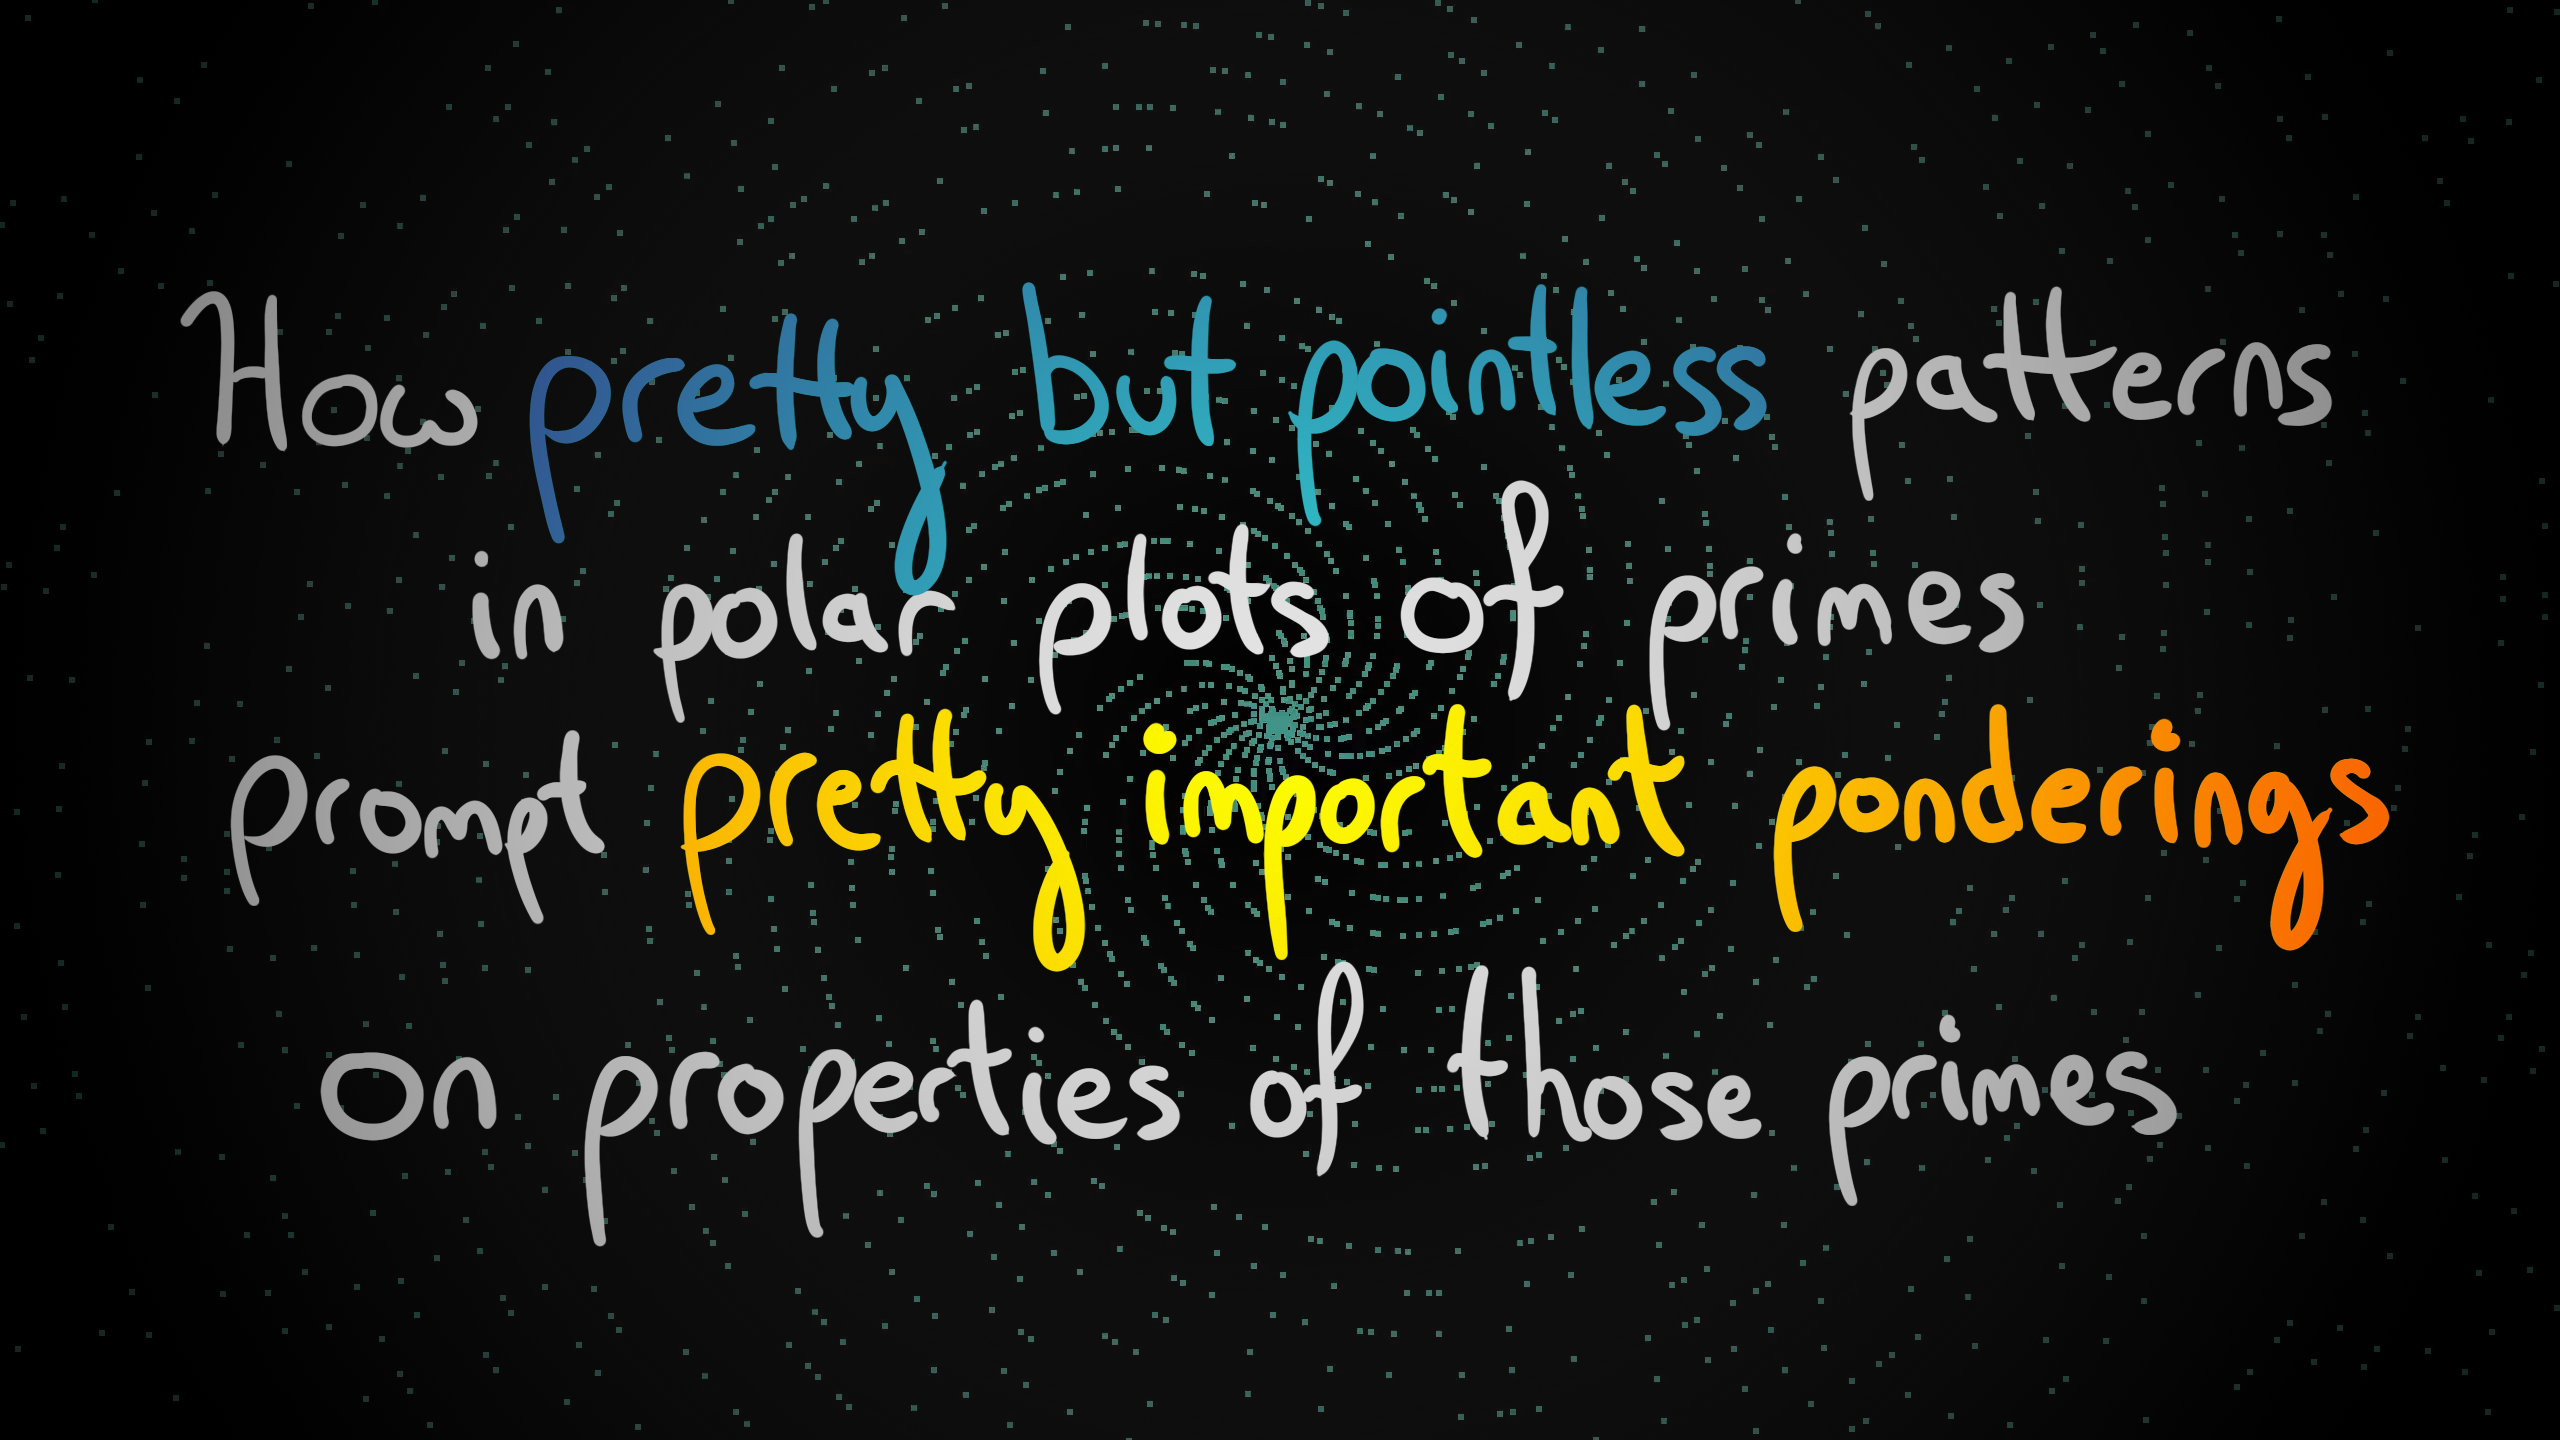 How pretty but pointless patterns
in polar plots of primes
prompt pretty important ponderings
on properties of those primes